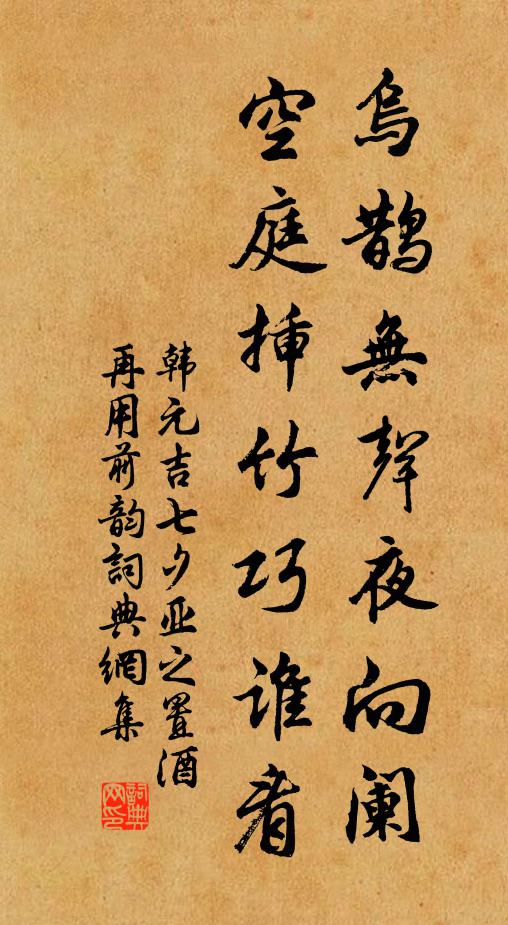 烏鵲無聲夜向阑
空庭挿竹巧谁看
韩元吉七夕亚之置酒
再用前韵詞典網集
詞典
网印